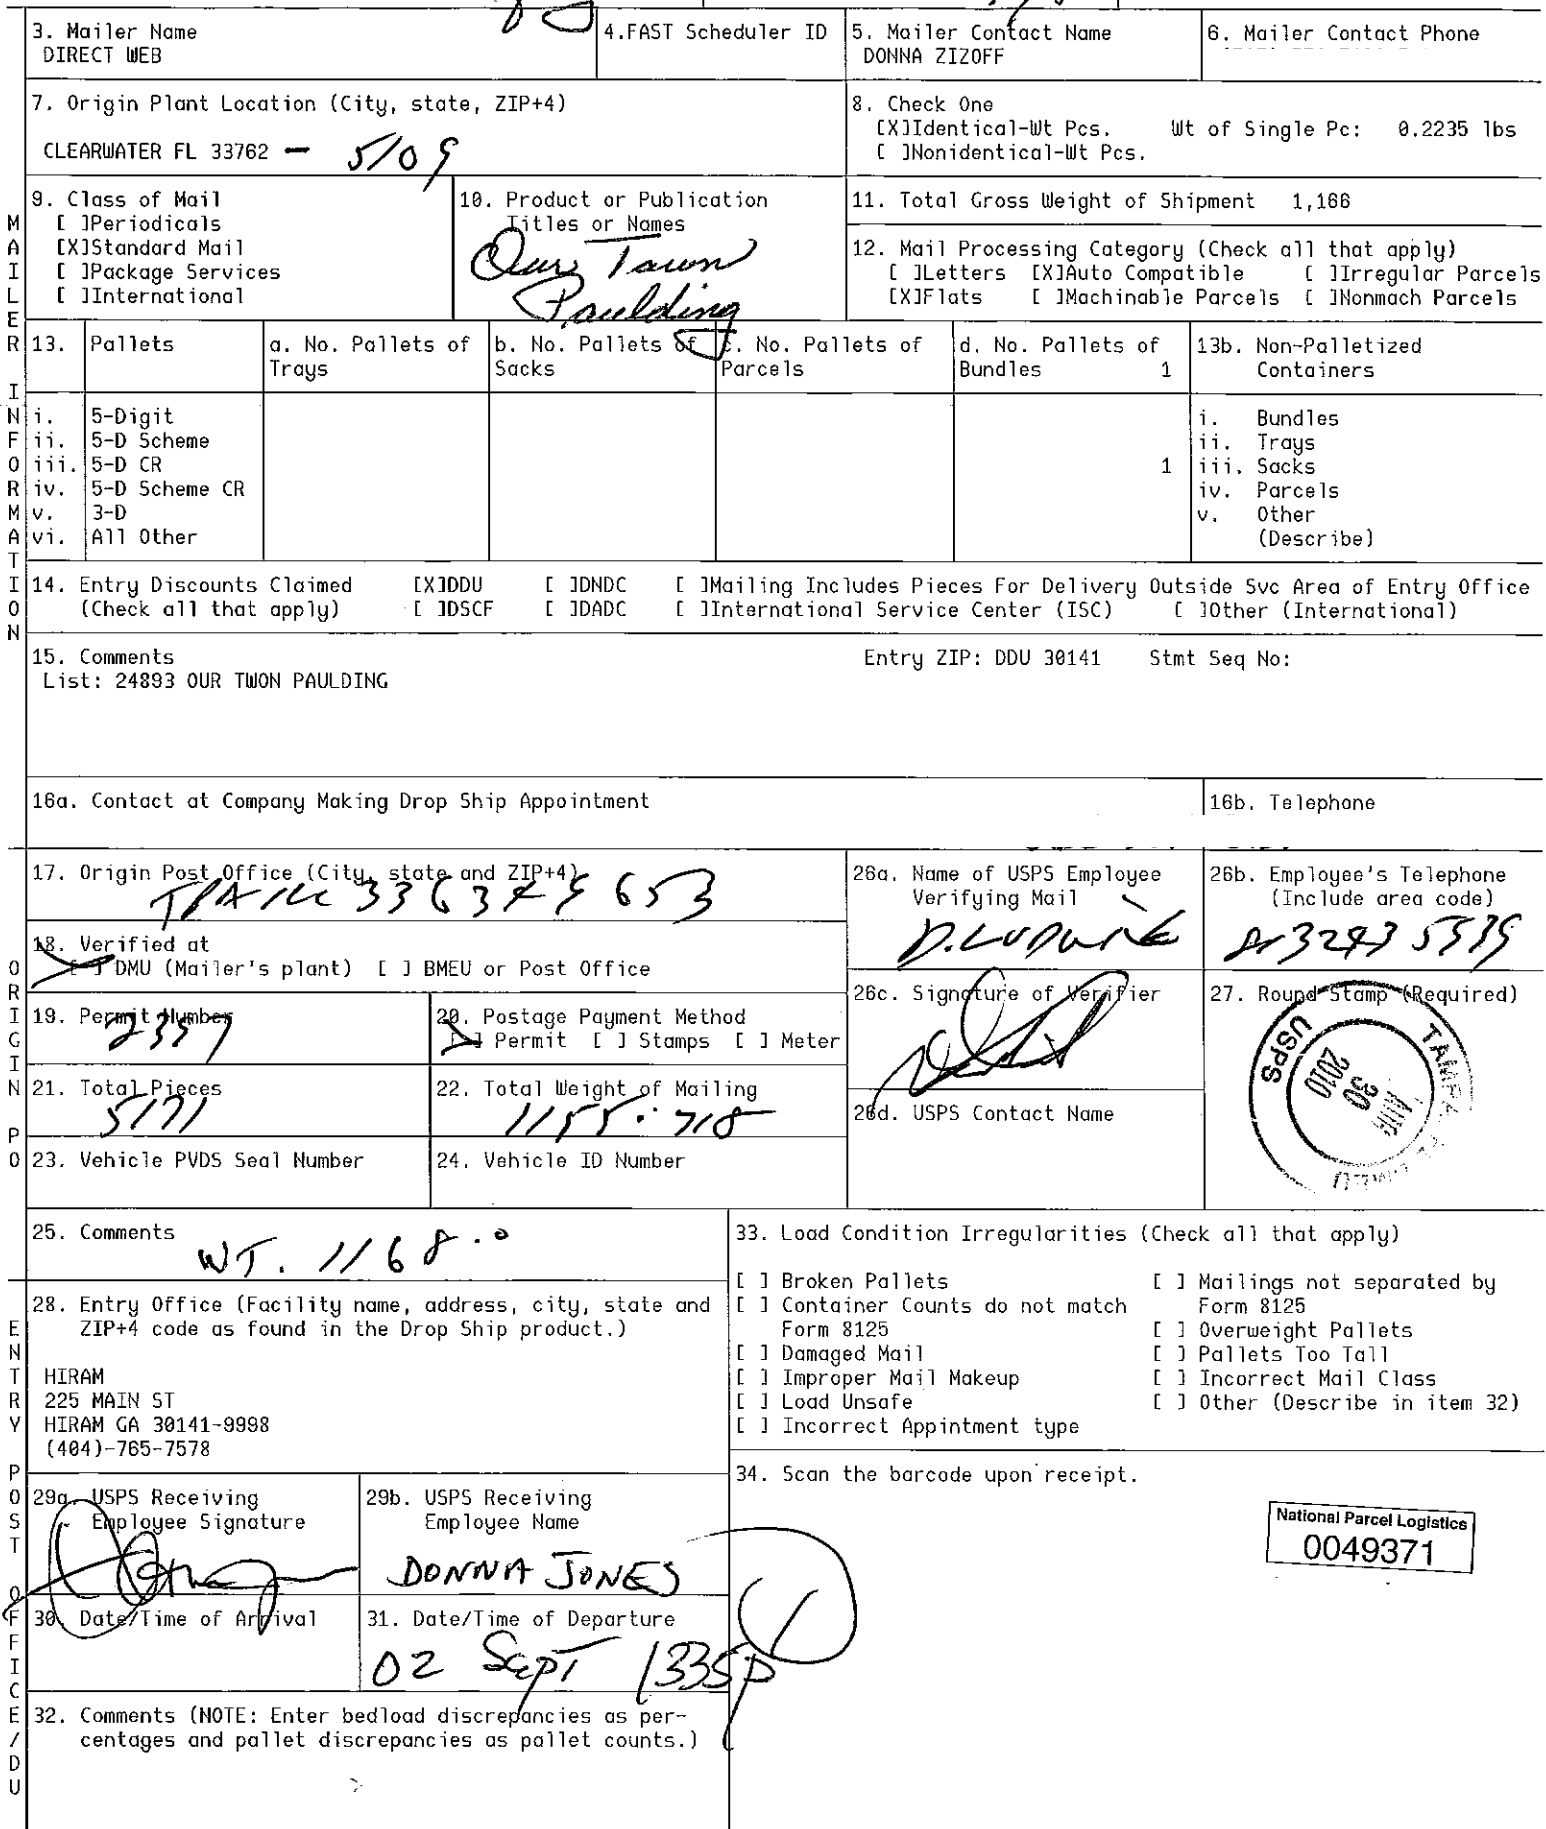 3. Mailer Name
DIRECT WEB
4.FAST Scheduler ID
5. Mailer Contact Name
DONNA ZIZOFF
6. Mailer Contact Phone
7. Origin Plant Location (City, state, ZIP+4)
CLEARWATER FL 33762 - 5109
8. Check One
[X]Identical-Wt Pcs. Wt of Single Pc: 0.2235 lbs
[ ]Nonidentical-Wt Pcs.
MAILER INFORMATION
9. Class of Mail
[ ]Periodicals
[X]Standard Mail
[ ]Package Services
[ ]International
10. Product or Publication
Titles or Names
Our Town
Paulding
11. Total Gross Weight of Shipment 1,166
12. Mail Processing Category (Check all that apply)
[ ]Letters [X]Auto Compatible [ ]Irregular Parcels
[X]Flats [ ]Machinable Parcels [ ]Nonmach Parcels
13. Pallets
a. No. Pallets of
Trays
b. No. Pallets of
Sacks
c. No. Pallets of
Parcels
d. No. Pallets of
Bundles 1
13b. Non-Palletized
Containers
i. 5-Digit
ii. 5-D Scheme
iii. 5-D CR 1
iv. 5-D Scheme CR
v. 3-D
vi. All Other
i. Bundles
ii. Trays
iii. Sacks
iv. Parcels
v. Other
(Describe)
14. Entry Discounts Claimed [X]DDU [ ]DNDC [ ]Mailing Includes Pieces For Delivery Outside Svc Area of Entry Office
(Check all that apply) [ ]DSCF [ ]DADC [ ]International Service Center (ISC) [ ]Other (International)
15. Comments Entry ZIP: DDU 30141 Stmt Seq No:
List: 24893 OUR TWON PAULDING
16a. Contact at Company Making Drop Ship Appointment
16b. Telephone
ORIGIN PO
17. Origin Post Office (City, state and ZIP+4)
18. Verified at
[ ] DMU (Mailer's plant) [ ] BMEU or Post Office
19. Permit Number
2357
20. Postage Payment Method
[ ] Permit [ ] Stamps [ ] Meter
21. Total Pieces
5171
22. Total Weight of Mailing
1155.718
23. Vehicle PVDS Seal Number
24. Vehicle ID Number
26a. Name of USPS Employee
Verifying Mail
26b. Employee's Telephone
(Include area code)
26c. Signature of Verifier
26d. USPS Contact Name
27. Round Stamp (Required)
USPS
30
2010
25. Comments
WT. 1168.0
ENTRY POST OFFICE/DU
28. Entry Office (Facility name, address, city, state and
ZIP+4 code as found in the Drop Ship product.)
HIRAM
225 MAIN ST
HIRAM GA 30141-9998
(404)-765-7578
29a. USPS Receiving
Employee Signature
29b. USPS Receiving
Employee Name
DONNA JONES
30. Date/Time of Arrival
31. Date/Time of Departure
02 Sept 1335p
32. Comments (NOTE: Enter bedload discrepancies as per-
centages and pallet discrepancies as pallet counts.)
33. Load Condition Irregularities (Check all that apply)
[ ] Broken Pallets
[ ] Container Counts do not match
Form 8125
[ ] Damaged Mail
[ ] Improper Mail Makeup
[ ] Load Unsafe
[ ] Incorrect Appintment type
[ ] Mailings not separated by
Form 8125
[ ] Overweight Pallets
[ ] Pallets Too Tall
[ ] Incorrect Mail Class
[ ] Other (Describe in item 32)
34. Scan the barcode upon receipt.
National Parcel Logistics
0049371